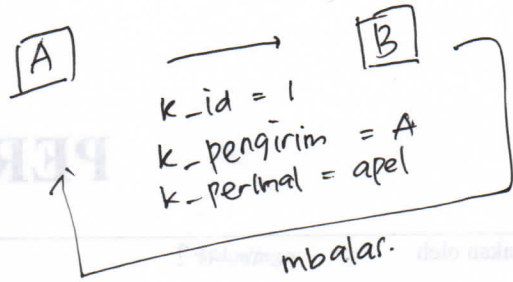 A
B
k_id = 1
k_pengirim = A
k_perimal = apel
mbalas.